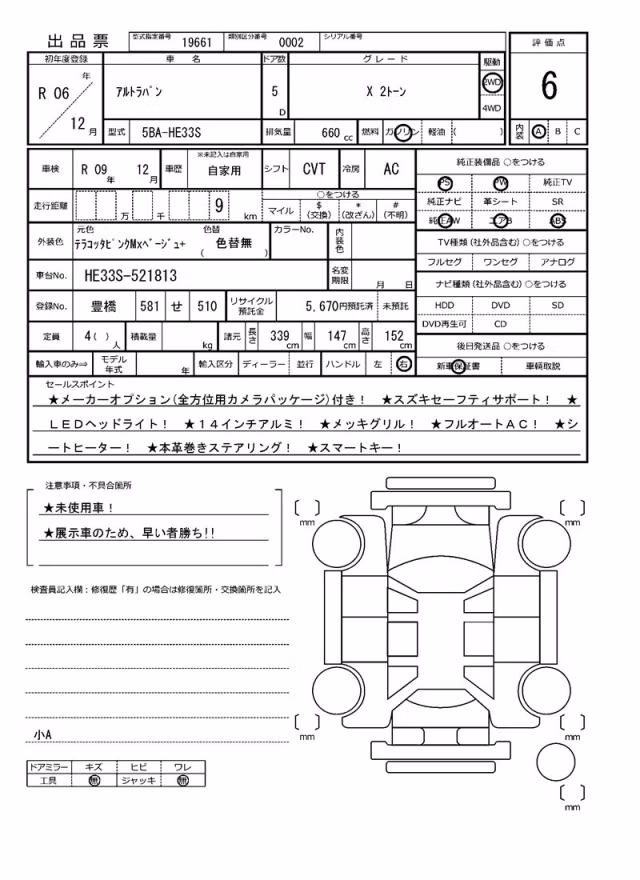 出品票 型式指定番号 19661 類別区分番号 0002 シリアル番号
初年度登録 車名 ドア数 グレード 駆動 評価点
R 06 年 12 月 アルトラパン 5 D X 2トーン 2WD 4WD 6
型式 5BA-HE33S 排気量 660 cc 燃料 ガソリン 軽油 ( ) 内装 A B C
車検 R 09 年 12 月 車歴 ※未記入は自家用 自家用 シフト CVT 冷房 AC
走行距離 万 千 9 km ○をつける マイル $ (交換) * (改ざん) # (不明)
外装色 元色 テラコッタピンクMxベージュ+ 色替 ( 色替無 ) カラーNo. 内装色
車台No. HE33S-521813 名変期限 月 日
登録No. 豊橋 581 せ 510 リサイクル預託金 5,670円預託済 未預託
定員 4( ) 人 積載量 kg 諸元 長さ 339 cm 幅 147 cm 高さ 152 cm
輸入車のみ⇒ モデル年式 年 輸入区分 ディーラー 並行 ハンドル 左 右
純正装備品 ○をつける
PS PW 純正TV
純正ナビ 革シート SR
純正AW エアB ABS
TV種類 (社外品含む) ○をつける
フルセグ ワンセグ アナログ
ナビ種類 (社外品含む) ○をつける
HDD DVD SD
DVD再生可 CD
後日発送品 ○をつける
新車保証書 車輌取説
セールスポイント
★メーカーオプション(全方位用カメラパッケージ)付き! ★スズキセーフティサポート! ★
LEDヘッドライト! ★14インチアルミ! ★メッキグリル! ★フルオートAC! ★シ
ートヒーター! ★本革巻きステアリング! ★スマートキー!
注意事項・不具合箇所
★未使用車!
★展示車のため、早い者勝ち!!
検査員記入欄:修復歴「有」の場合は修復箇所・交換箇所を記入
小A
ドアミラー キズ ヒビ ワレ
工具 無 ジャッキ 無
mm
mm
mm
mm
mm